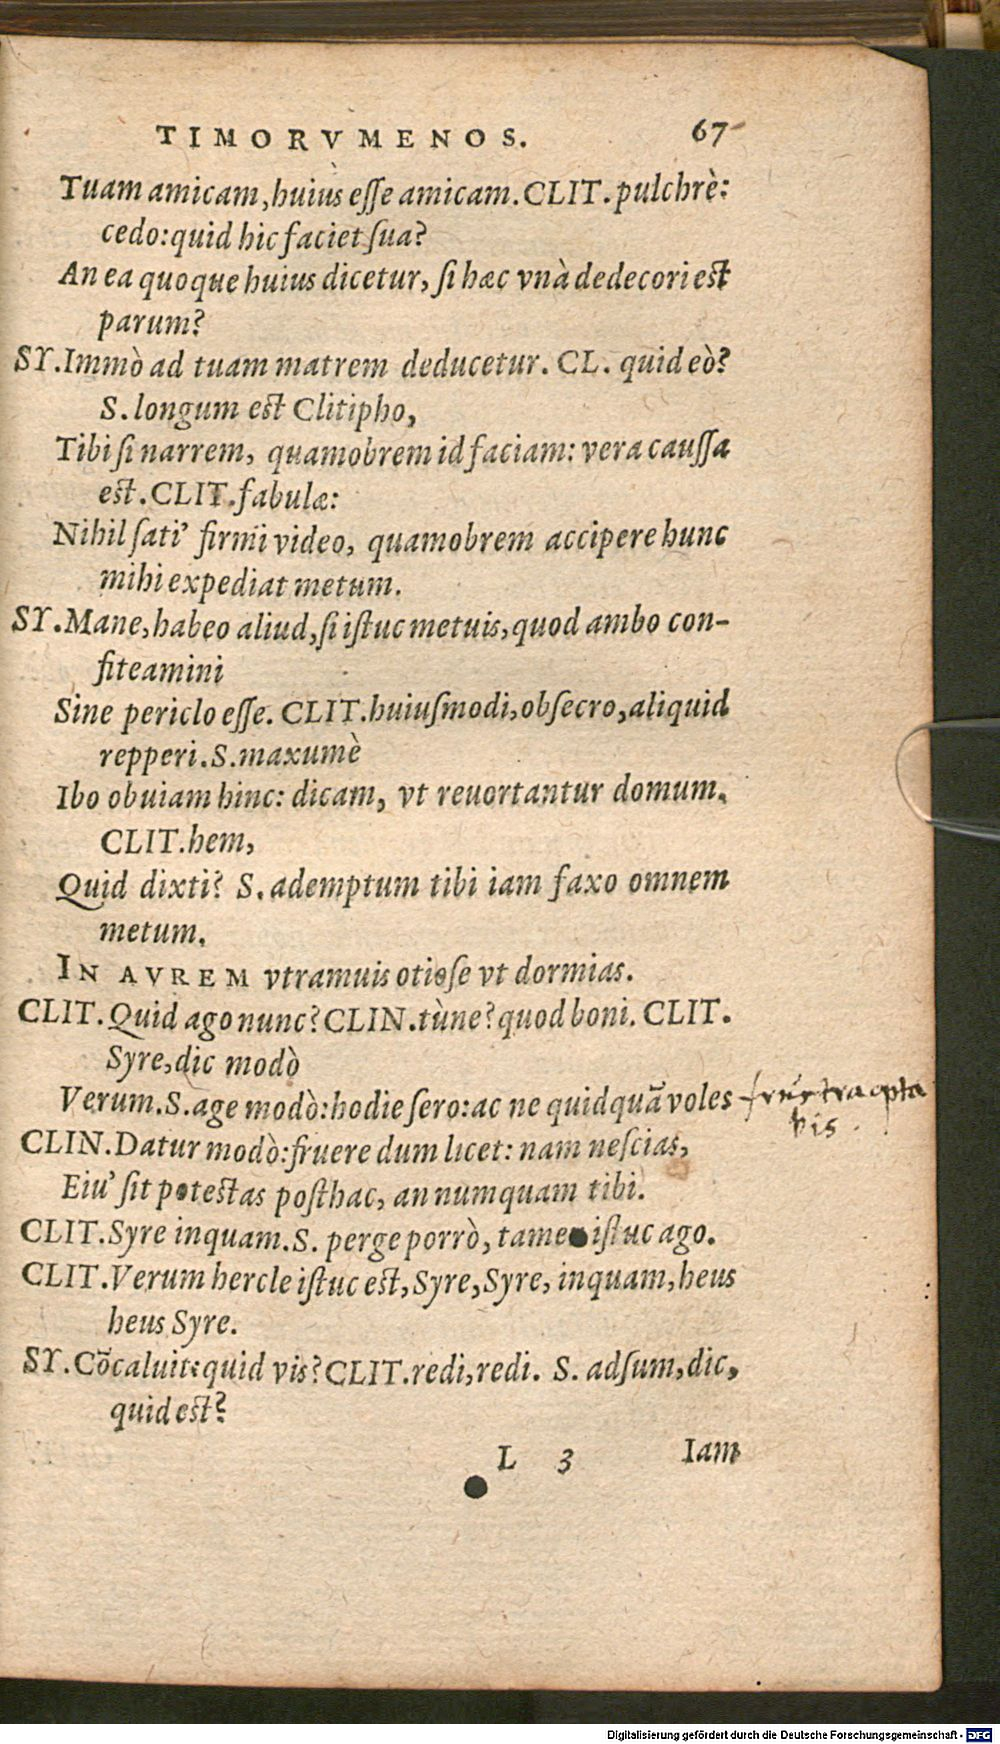 TIMORVMENOS. 67
Tuam amicam, huius esse amicam. CLIT. pulchrè:
cedo: quid hic faciet sua?
An ea quoque huius dicetur, si hæc vnà dedecori est
parum?
SY. Immò ad tuam matrem deducetur. CL. quid eò?
S. longum est Clitipho,
Tibi si narrem, quamobrem id faciam: vera caussa
est. CLIT. fabulæ:
Nihil sati' firmi video, quamobrem accipere hunc
mihi expediat metum.
SY. Mane, habeo aliud, si istuc metuis, quod ambo con-
fiteamini
Sine periclo esse. CLIT. huiusmodi, obsecro, aliquid
repperi. S. maxumè
Ibo obuiam hinc: dicam, vt reuortantur domum.
CLIT. hem,
Quid dixti? S. ademptum tibi iam faxo omnem
metum.
IN AVREM vtramuis otiose vt dormias.
CLIT. Quid ago nunc? CLIN. tùne? quod boni. CLIT.
Syre, dic modò
Verum. S. age modò: hodie sero: ac ne quidquā voles frustra opta
bis.
CLIN. Datur modò: fruere dum licet: nam nescias,
Eiu' sit potestas posthac, an numquam tibi.
CLIT. Syre inquam. S. perge porrò, tamen istuc ago.
CLIT. Verum hercle istuc est, Syre, Syre, inquam, heus
heus Syre.
SY. Cōcaluit: quid vis? CLIT. redi, redi. S. adsum, dic,
quid est?
L 3 Iam
Digitalisierung gefördert durch die Deutsche Forschungsgemeinschaft - DFG